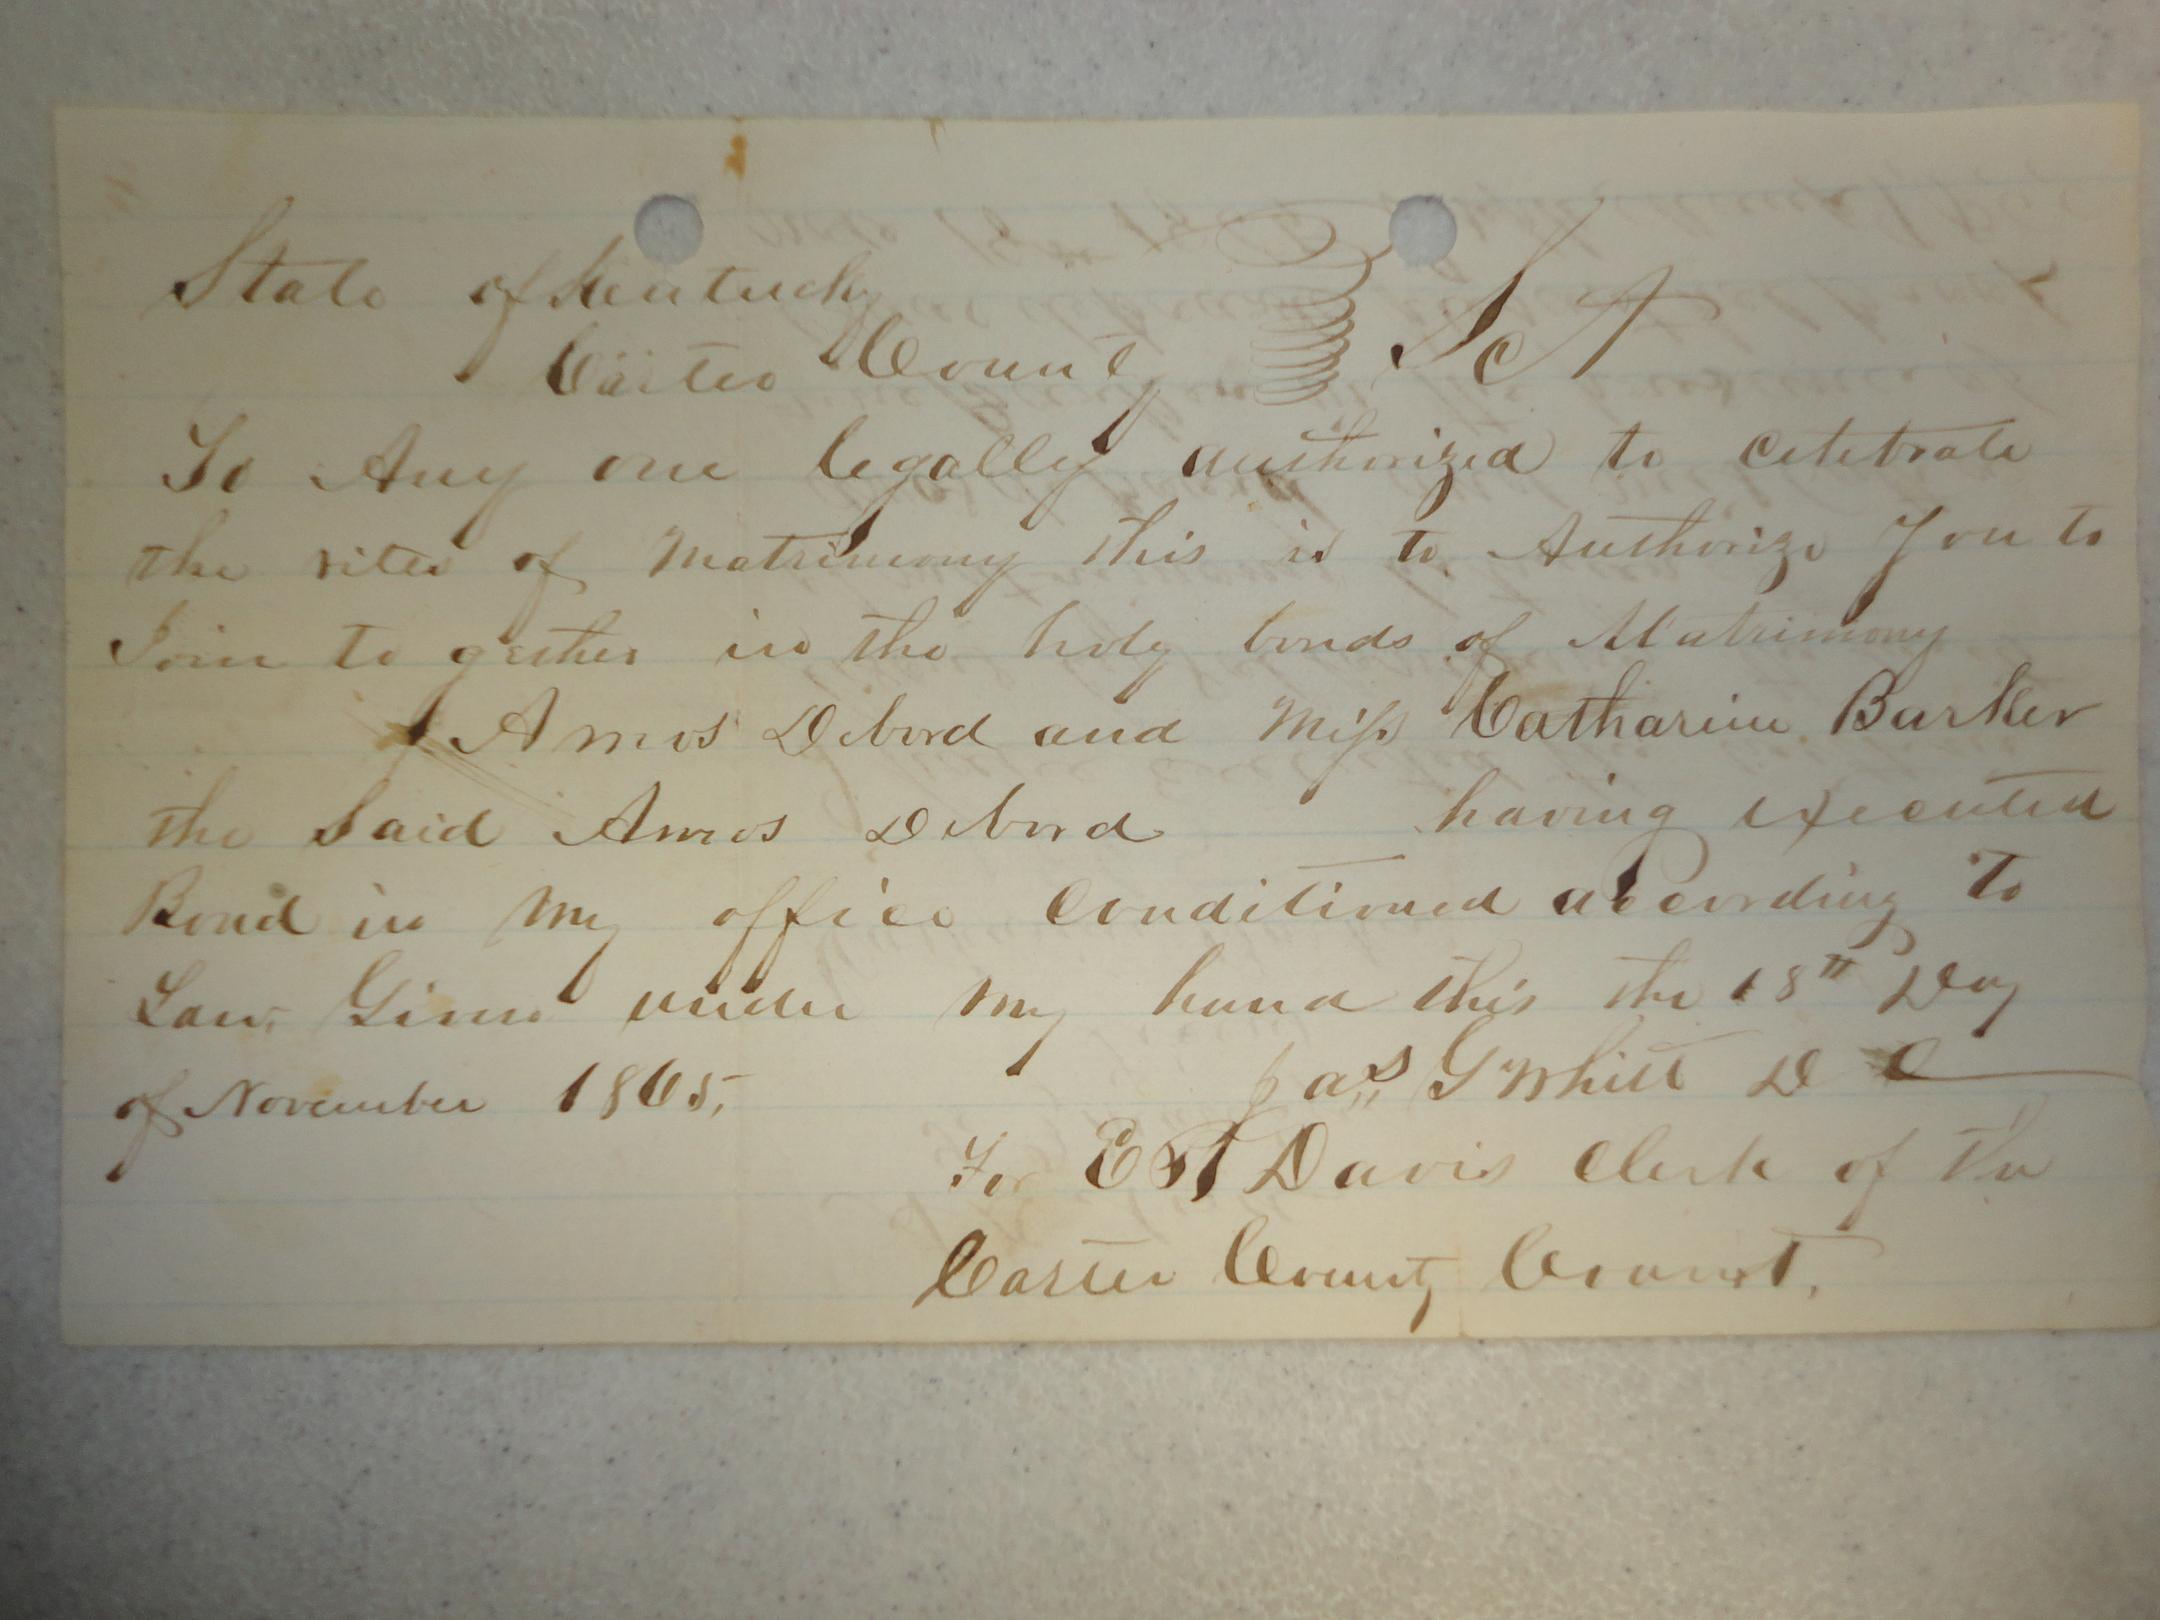 State of Kentucky
Carter County Sct
To Any one legally authorized to celebrate
the rites of Matrimony this is to Authorize You to
Join to gether in the holy bonds of Matrimony
Amos Debord and Miss Catharine Barker
the Said Amos Debord having executed
Bond in My office Conditioned according to
Law, Given under my hand this the 18th Day
of November 1865,
Jas G Whitt D C
For E Davis Clerk of the
Carter County Court.